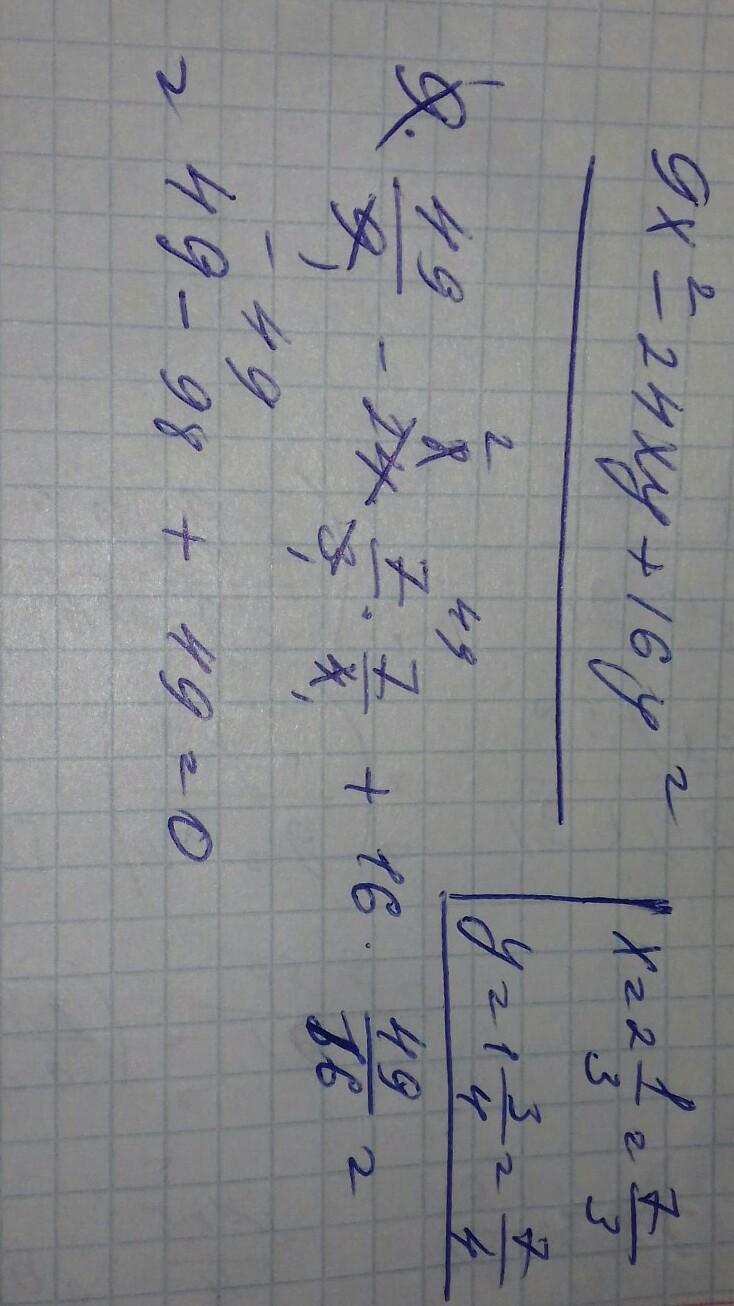 9x² - 24xy + 16y²
x = 2 1/3 = 7/3
y = 1 3/4 = 7/4
9 · 49/9 - 24 · 7/3 · 7/4 + 16 · 49/16 =
= 49 - 98 + 49 = 0
- 49